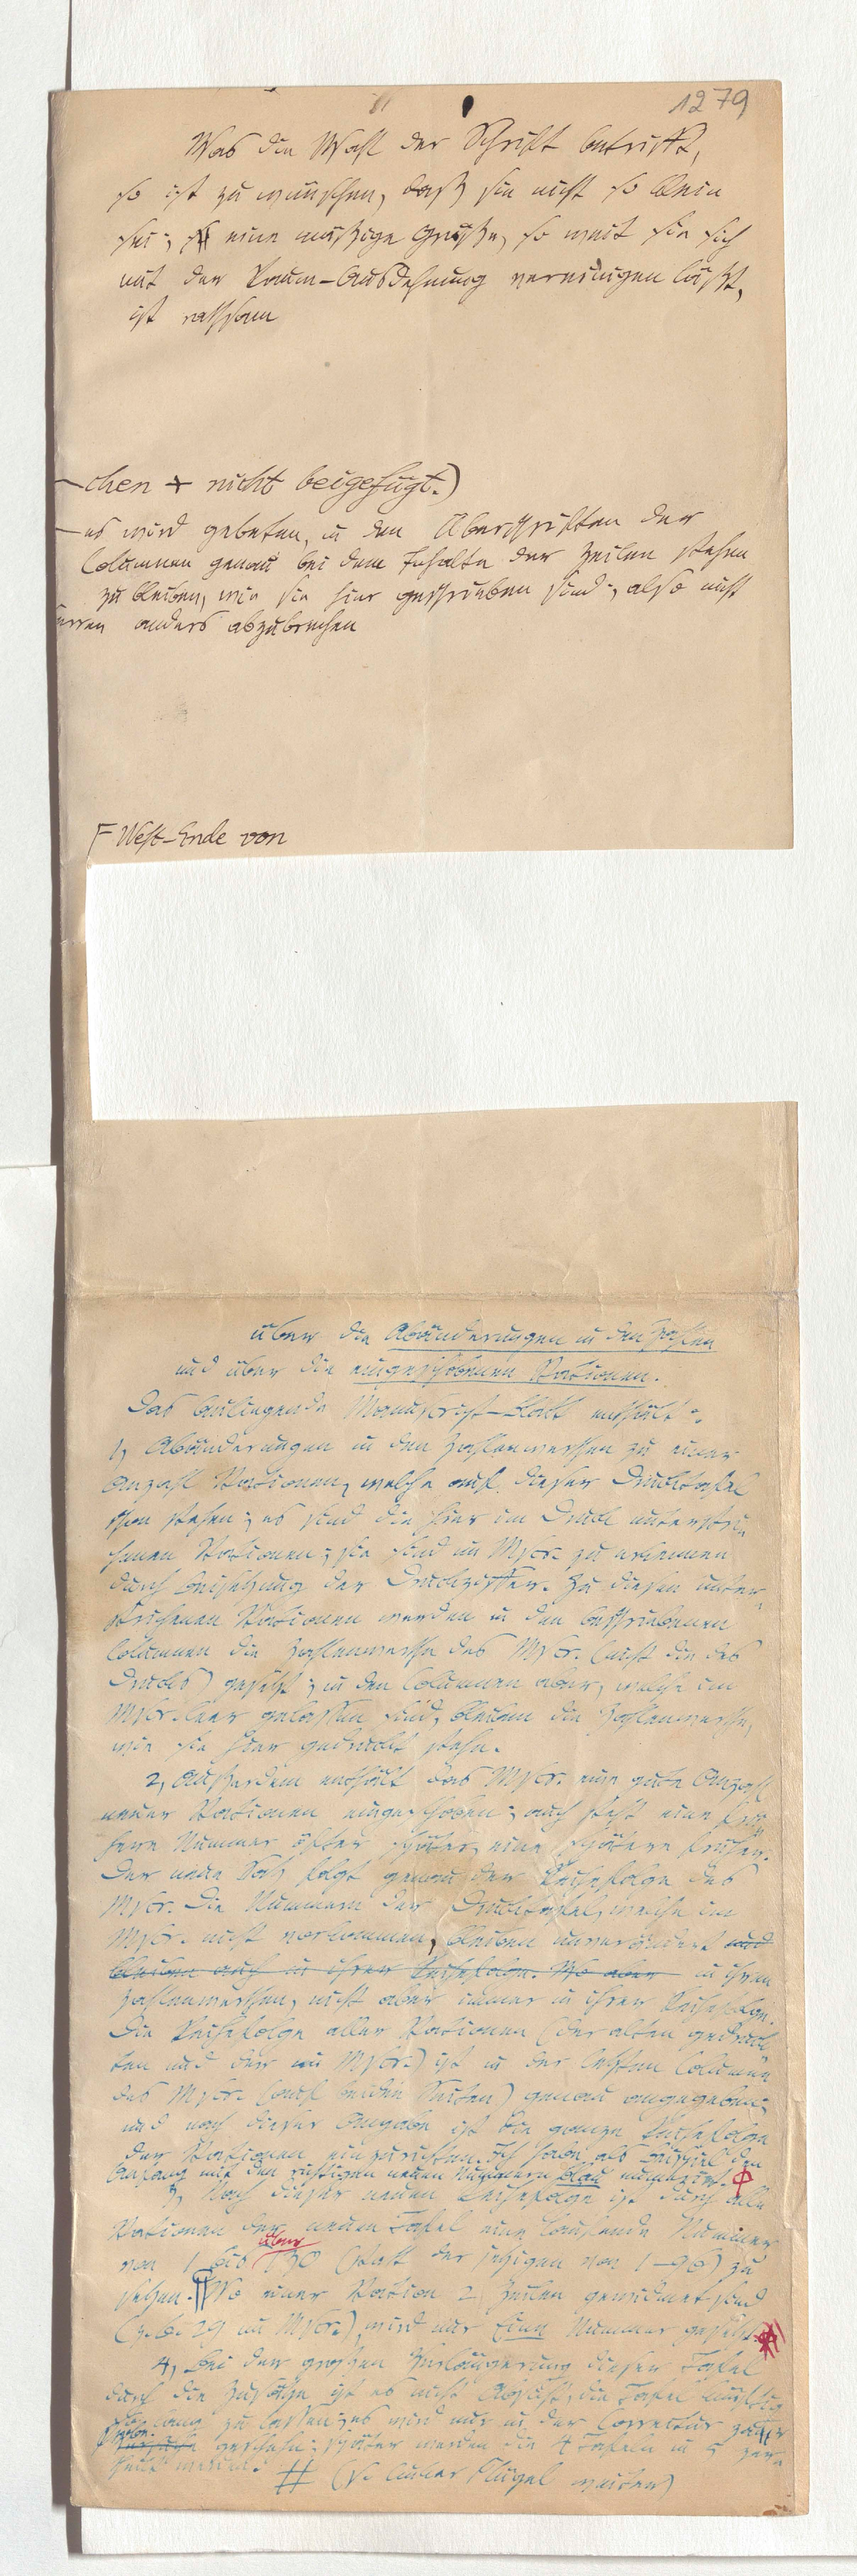 1279
Was die Wahl der Schrift betrifft,
so ist zu wünschen, daß sie nicht so klein
sei; eine mäßige Größe, so weit sie sich
mit der Raum-Ausdehnung vereinigen läßt,
ist rathsam
chen + nicht beigefügt.)
es wird gebeten, in den Überschriften der
Columnen genau bei dem Inhalte der Zeilen stehen
zu bleiben, wie sie hier geschrieben sind; also nicht
anders abzubrechen
West-Ende von
über die Abänderungen in den Zahlen
und über die eingeschobenen Stationen.
Das beiliegende Manuscript-Blatt enthält:
1, Abänderungen in den Zahlenwerthen zu einer
Anzahl Stationen, welche auf dieser Drucktafel
schon stehen; es sind die hier im Druck unterstri-
chenen Stationen; sie sind im Mscr. zu erkennen
durch Beisetzung der Druckziffer. Zu diesen unter-
strichenen Stationen werden in den beschriebenen
Columnen die Zahlenwerthe des Mscr. (nicht die des
Drucks) gesetzt; in den Columnen aber, welche im
Mscr. leer gelassen sind, bleiben die Zahlenwerthe,
wie sie hier gedruckt stehn.
2, Außerdem enthält das Mscr. eine gute Anzahl
neuer Stationen eingeschoben; auch steht eine frü-
here Nummer öfter später, eine spätere früher.
Der neue Satz folgt genau der Reihefolge des
Mscr. Die Nummern der Drucktafel, welche im
Mscr. nicht vorkommen, bleiben unverändert und
bleiben auch in ihrer Reihefolge. Wo aber in ihren
Zahlenwerthen, nicht aber immer in ihrer Reihefolge.
Die Reihefolge aller Stationen (der alten gedruck-
ten und der im Mscr.) ist in der letzten Columne
des Mscr. (auf beiden Seiten) genau angegeben;
und nach dieser Angabe ist die ganze Reihefolge
der Stationen einzurichten. Ich habe als Beispiel den
Anfang mit den richtigen neuen Nummern blau numerirt.
3, Nach dieser neuen Reihefolge ist durch alle
Stationen der neuen Tafel eine laufende Nummer
von 1 bis 130 (statt der jetzigen von 1-96) zu
setzen. Wo einer Station 2 Zeilen gewidmet sind
(z. B. 29 im Mscr.), wird nur Eine Nummer gesetzt.
4, Bei der großen Verlängerung dieser Tafel
durch die Zusätze ist es nicht Absicht, die Tafel künftig
so lang zu lassen; es wird nur in der Correctur
geschehn; später werden die 4 Tafeln in 5 zer-
theilt werden.
# (s. linker Flügel weiter)